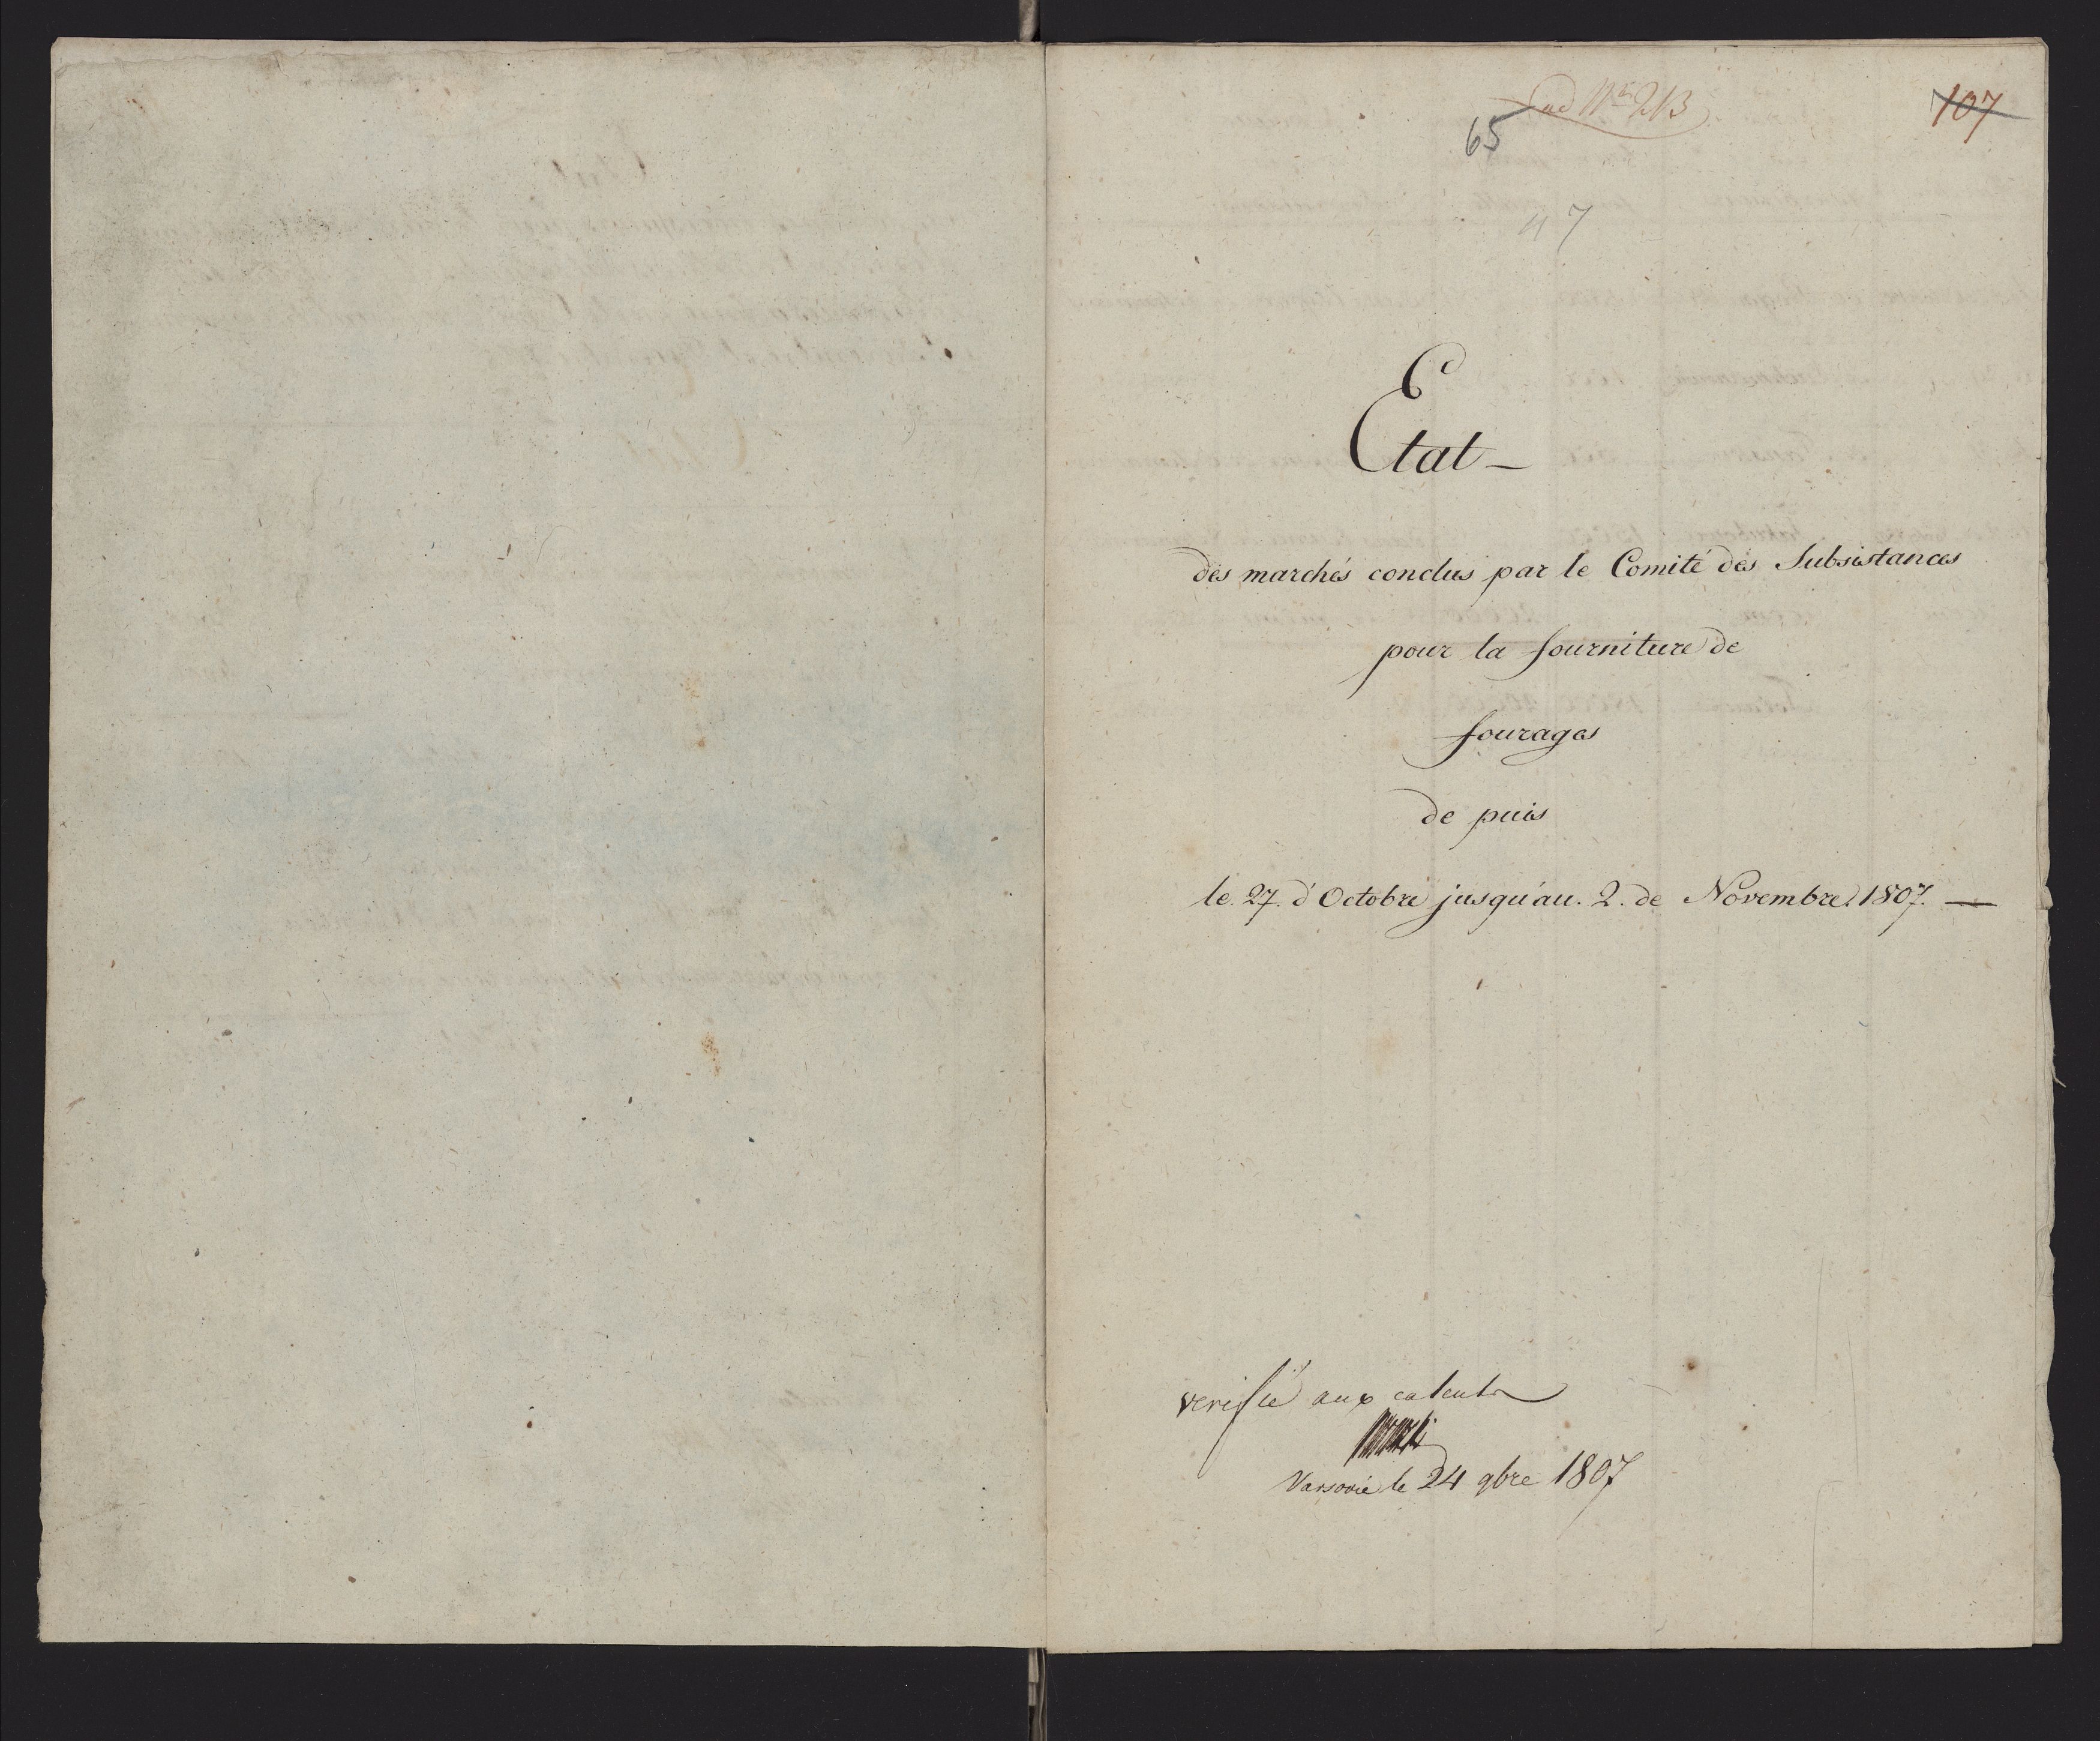 ad No 213
65
107
47
Etat
des marchés conclus par le Comité des Subsistances
pour la fourniture de
fourages
de puis
le 27. d'Octobre jusqu'au. 2. de Novembre 1807.
verifié aux calculs
Varsovie le 24 9bre 1807